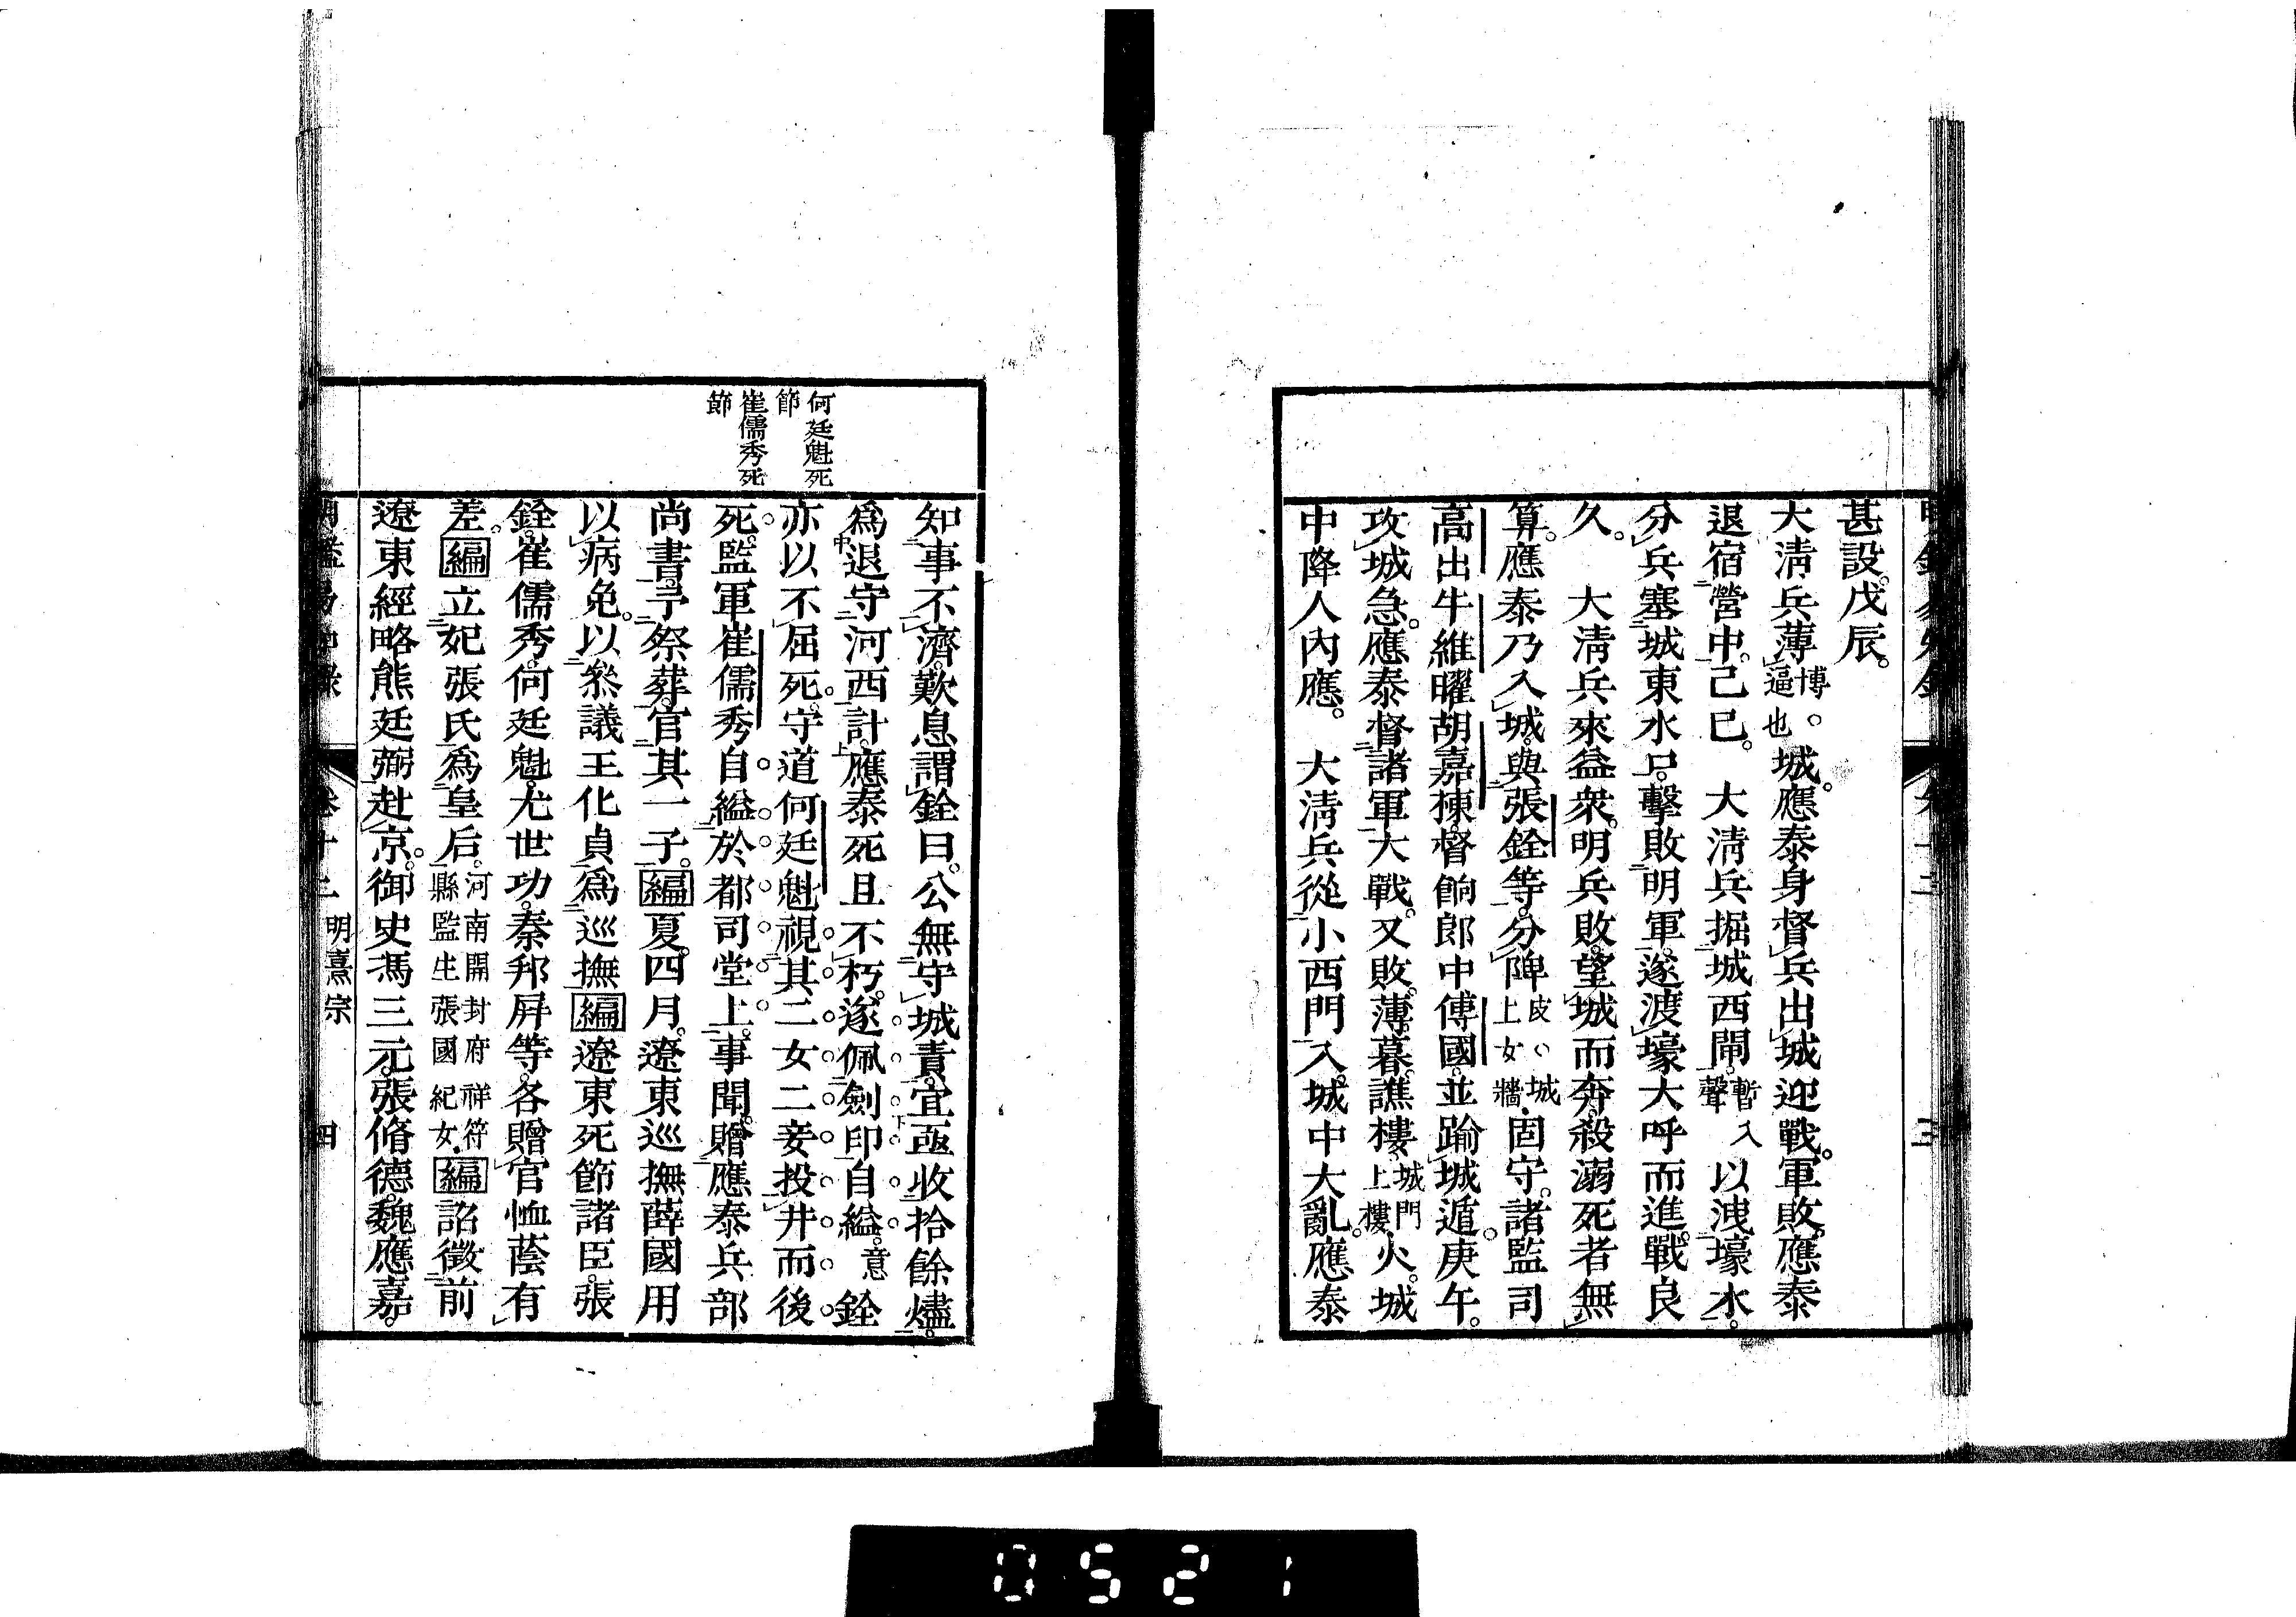 甚設。戊辰。
大淸兵薄博。逼也城。應泰身督兵出城迎戰。軍敗。應泰
退宿營中。己巳。　大淸兵掘城西閘暫入聲以洩壕水。
分兵塞城東水口。擊敗明軍。遂渡壕大呼而進。戰良
久。　大淸兵來益衆。明兵敗。望城而奔。殺溺死者無
算。應泰乃入城。與張銓等。分陴皮、城上女牆。固守。諸監司
高出牛維曜胡嘉棟。督餉郎中傅國。並踰城遁。庚午。
攻城急。應泰督諸軍大戰。又敗。薄暮。譙樓城門上樓火。城
中降人內應。　大淸兵從小西門入。城中大亂。應泰
何廷魁死
節
崔儒秀死
節
知事不濟。歎息謂銓曰。公無守城責。宜亟收拾餘燼。
爲退守河西計。應泰死且不朽。遂佩劍印自縊。意銓
亦以不屈死。守道何廷魁視其二女二妾投井而後
死。監軍崔儒秀自縊於都司堂上。事聞。贈應泰兵部
尚書。予祭葬。官其一子。編夏。四月。遼東巡撫薛國用
以病免。以叅議王化貞爲巡撫編遼東死節諸臣。張
銓。崔儒秀。何廷魁。尤世功。秦邦屛等。各贈官恤蔭有
差。編立妃張氏爲皇后。河南開封府祥符縣監生張國紀女。編詔徵前
遼東經略熊廷弼赴京。御史馮三元。張脩德。魏應嘉。
明熹宗　四
0521